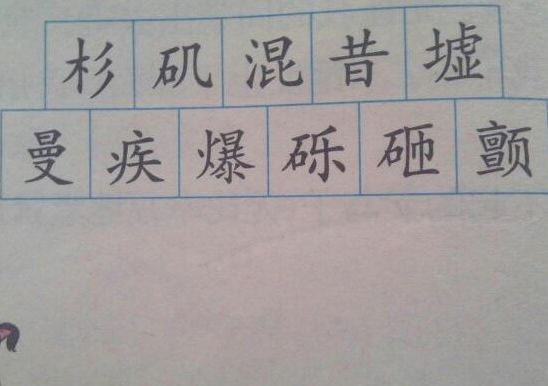 杉矶混昔墟
曼疾爆砾砸颤